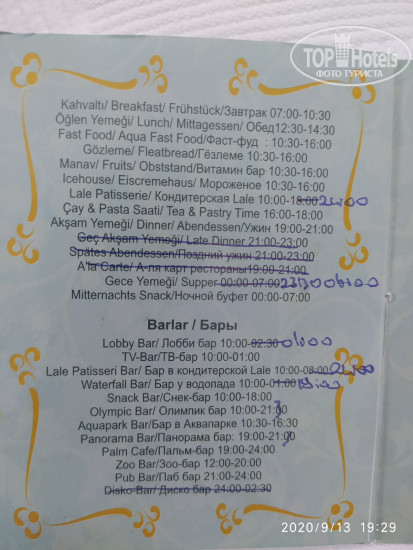 TOPHotels
ФОТО ТУРИСТА
Kahvaltı/ Breakfast/ Frühstück/Завтрак 07:00-10:30
Öğlen Yemeği/ Lunch/ Mittagessen/ Обед12:30-14:30
Fast Food/ Aqua Fast Food/Фаст-фуд : 10:30-16:00
Gözleme/ Fleatbread/Гёзлеме 10:30-16:00
Manav/ Fruits/ Obststand/Витамин бар 10:30-16:00
Icehouse/ Eiscremehaus/ Мороженое 10:30-16:00
Lale Patisserie/ Кондитерская Lale 10:00-18:00
Çay & Pasta Saati/ Tea & Pastry Time 16:00-18:00
Akşam Yemeği/ Dinner/ Abendessen/Ужин 19:00-21:00
Geç Akşam Yemeği/ Late Dinner 21:00-23:00
Spätes Abendessen/Поздний ужин 21:00-23:00
A'la Carte/ А-ля карт рестораны19:00-21:00
Gece Yemeği/ Supper 00:00-07:00
Mitternachts Snack/Ночной буфет 00:00-07:00
Barlar / Бары
Lobby Bar/ Лобби бар 10:00-02:30
TV-Bar/ТВ-бар 10:00-01:00
Lale Patisseri Bar/ Бар в кондитерской Lale 10:00-08:00
Waterfall Bar/ Бар у водопада 10:00-01:00
Snack Bar/Снек-бар 10:00-18:00
Olympic Bar/ Олимпик бар 10:00-21:00
Aquapark Bar/Бар в Аквапарке 10:30-16:30
Panorama Bar/Панорама бар: 19:00-21:00
Palm Cafe/Пальм-бар 19:00-24:00
Zoo Bar/Зоо-бар 12:00-20:00
Pub Bar/Паб бар 21:00-24:00
Disko Bar/ Диско бар 24:00-02:30
2020/9/13 19:29